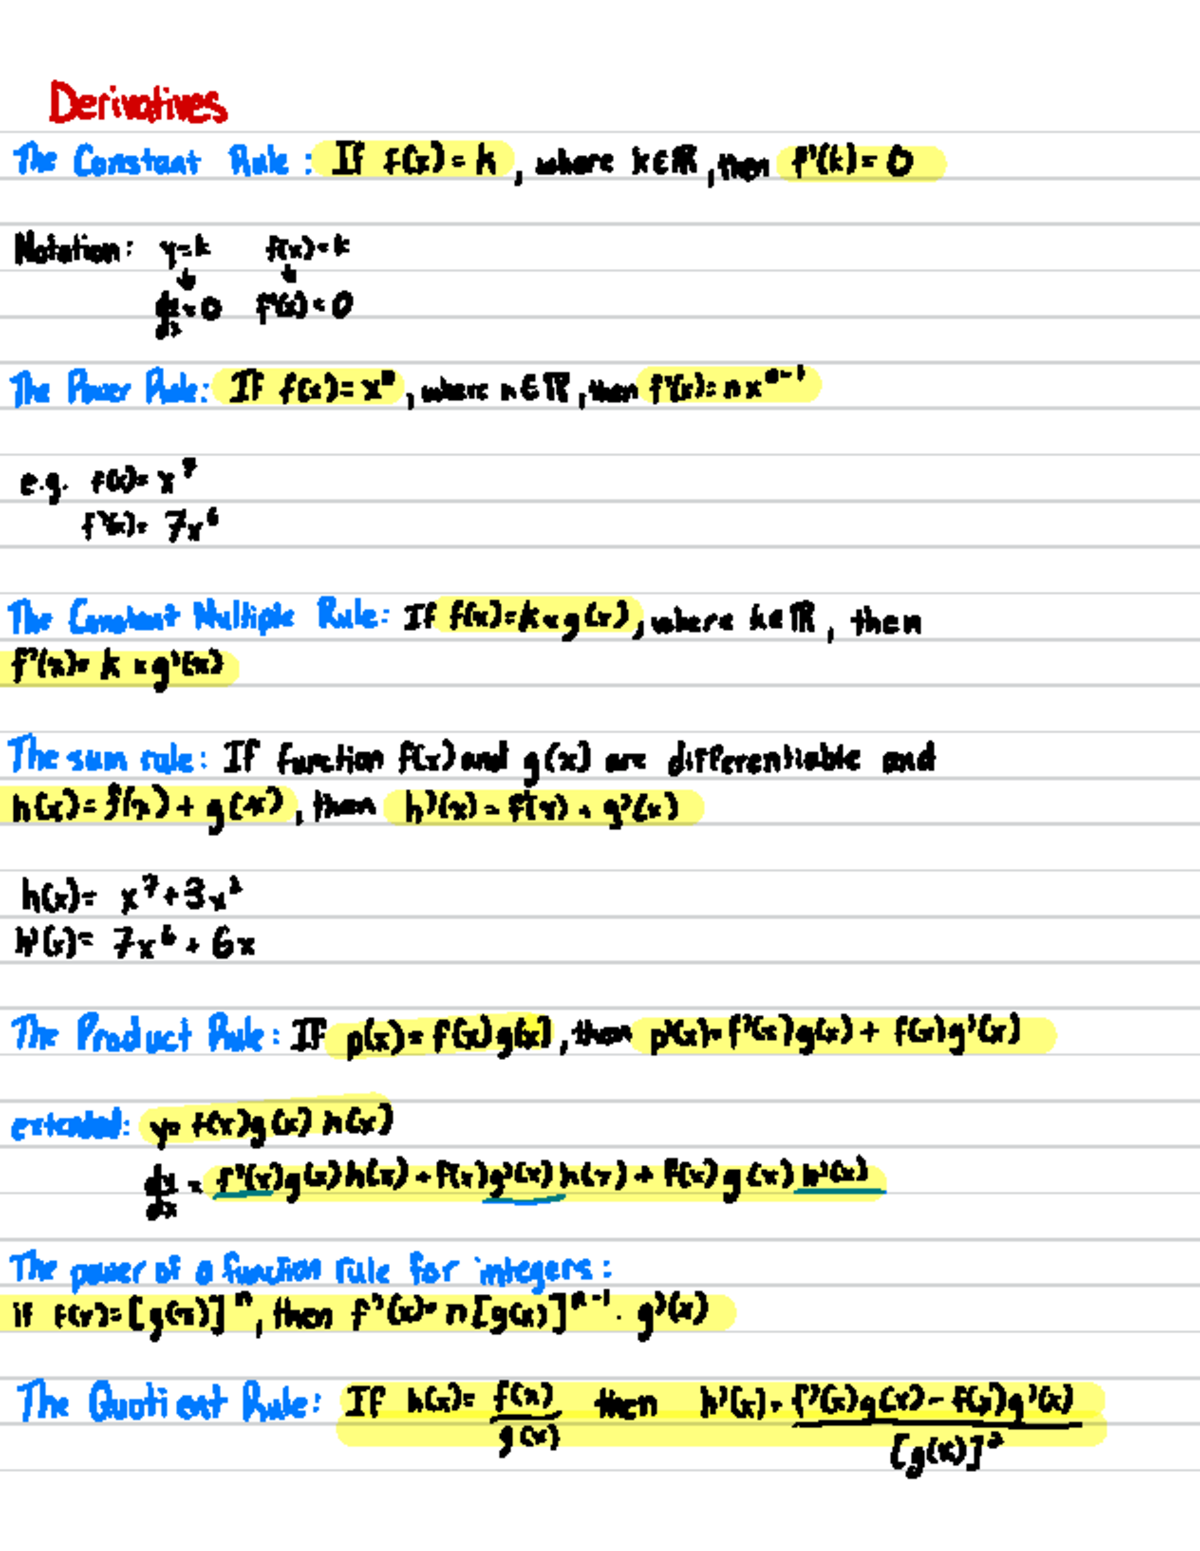 Derivatives
The Constant Rule: If f(x) = k, where k∈ℝ, then f'(k) = 0
Notation: y=k f(x)=k
↓ ↓
dy/dx = 0 f'(x) = 0
The Power Rule: If f(x) = xⁿ, where n∈ℝ, then f'(x) = nxⁿ⁻¹
e.g. f(x) = x⁷
f'(x) = 7x⁶
The Constant Multiple Rule: If f(x) = k × g(x), where k∈ℝ, then
f'(x) = k × g'(x)
The sum rule: If function f(x) and g(x) are differentiable and
h(x) = f(x) + g(x), then h'(x) = f'(x) + g'(x)
h(x) = x⁷ + 3x²
h'(x) = 7x⁶ + 6x
The Product Rule: If p(x) = f(x)g(x), then p'(x) = f'(x)g(x) + f(x)g'(x)
extended: y = f(x)g(x)h(x)
dy/dx = f'(x)g(x)h(x) + f(x)g'(x)h(x) + f(x)g(x)h'(x)
The power of a function rule for integers:
if f(x) = [g(x)]ⁿ, then f'(x) = n[g(x)]ⁿ⁻¹ · g'(x)
The Quotient Rule: If h(x) = f(x)/g(x) then h'(x) = f'(x)g(x) - f(x)g'(x)/[g(x)]²